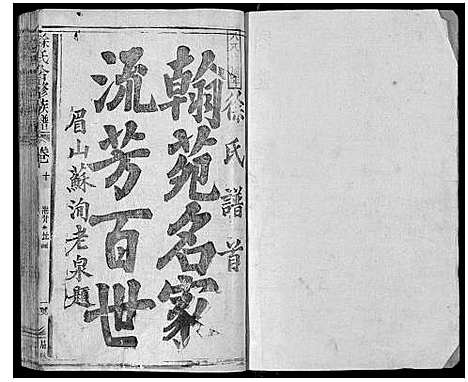 徐氏譜首
翰苑名家
流芳百世
眉山蘇洵老泉題
徐氏合修族譜